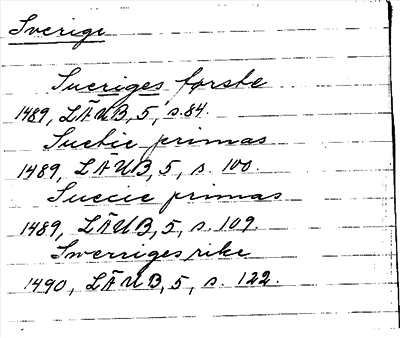 Sverige
Sueriges første
1489, LÄUB, 5, s. 84.
Suecie primas
1489, LÄUB, 5, s. 100.
Suecie primas
1489, LÄUB, 5, s. 109.
Swerriges rike
1490, LÄUB, 5, s. 122.